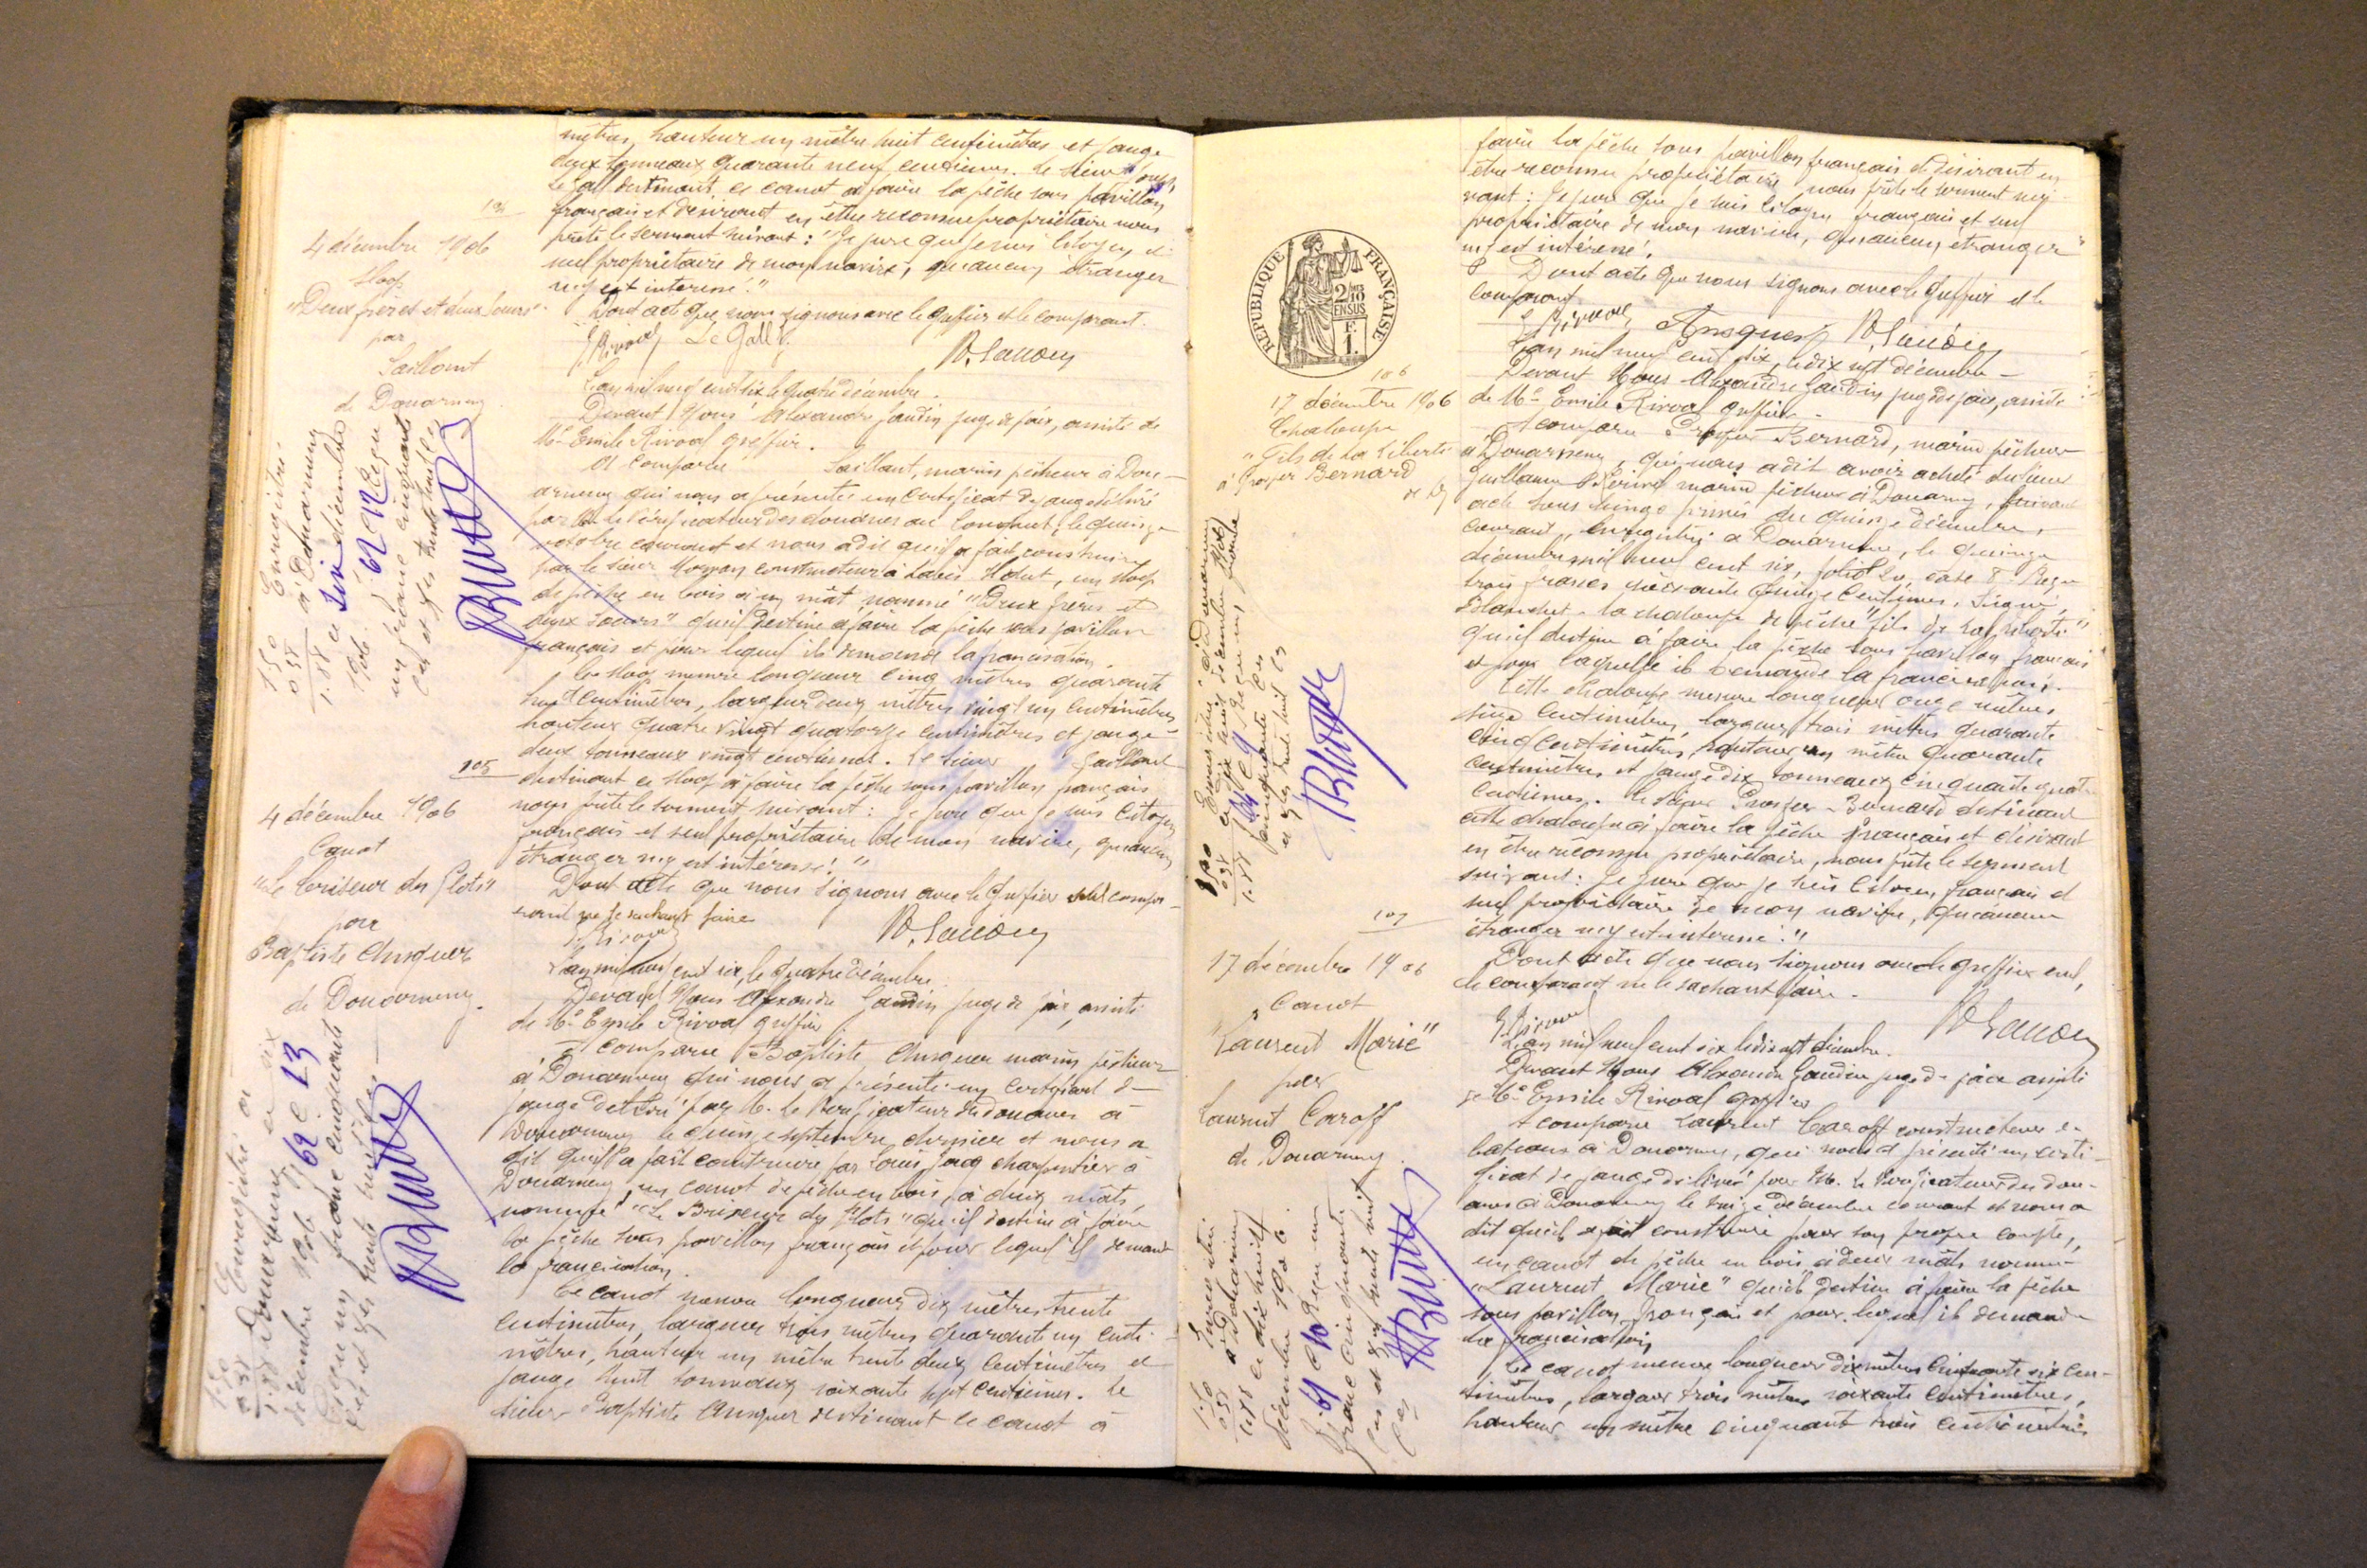 mètres, hauteur un mètre huit centimètres et jauge
deux tonneaux quarante neuf centièmes. Le sieur
Le Gall destinant ce canot à faire la pêche sous pavillon
français et désirant en être reconnu propriétaire nous
prête le serment suivant : "Je jure que je suis citoyen et
seul propriétaire de mon navire, qu'aucun étranger
n'y est intéressé."
Dont acte que nous signons avec le greffier et le comparant.
E Rivoal Le Gall
104
4 décembre 1906
Sloop
"Deux frères et deux soeurs"
par
Saillant
de Douarnenez
L'an mil neuf cent six le quatre décembre.
Devant Nous Alexandre Gaudin juge de paix, assisté de
Me Emile Rivoal greffier.
A comparu Saillant, marin pêcheur à Dou-
arnenez qui nous a présenté un certificat de jauge délivré
par M. le Vérificateur des douanes au Conquet, le quinze
octobre courant et nous a dit qu'il a fait construire
par le sieur constructeur à un sloop
de pêche en bois à un mât nommé "Deux frères et
deux soeurs" qu'il destine à faire la pêche sous pavillon
français et pour lequel il demande la francisation.
Ce sloop mesure longueur cinq mètres quarante
huit centimètres, largeur deux mètres vingt un centimètres
hauteur quatre vingt quatorze centimètres et jauge
deux tonneaux vingt centièmes. Le sieur Saillant
destinant ce sloop à faire la pêche sous pavillon français
nous prête le serment suivant : Je jure que je suis citoyen
français et seul propriétaire de mon navire, qu'aucun
étranger n'y est intéressé."
Dont acte que nous signons avec le greffier seul compa-
rant ne le sachant faire
E Rivoal
Enregistré
à Douarnenez
1.50
0.38
1.88
le six décembre
1906 fo 62 c 12 Reçu
un franc cinquante
ces et Xes trente huit ces
105
4 décembre 1906
Canot
"Le briseur des flots"
par
Baptiste Ansquer
de Douarnenez.
L'an mil neuf cent six, le quatre décembre.
Devant Nous Alexandre Gaudin juge de paix, assisté
de Me Emile Rivoal greffier
A comparu Baptiste Ansquer marin pêcheur
à Douarnenez qui nous a présenté un certificat de
jauge délivré par M. le Vérificateur des douanes à
Douarnenez le quinze septembre dernier et nous a
dit qu'il a fait construire par Louis charpentier à
Douarnenez, un canot de pêche en bois, à deux mâts,
nommé "Le Briseur des flots" qu'il destine à faire
la pêche sous pavillon français et pour lequel il demande
la francisation.
Ce canot mesure longueur dix mètres trente
centimètres, largeur trois mètres quarante un centi-
mètres, hauteur un mètre trente deux centimètres et
jauge huit tonneaux soixante sept centièmes. Le
sieur Baptiste Ansquer destinant ce canot à
Enregistré à
Douarnenez le six
1.50
0.38
1.88
décembre 1906 fo 62 c 13
Reçu un franc cinquante
ces et Xes trente huit ces
faire la pêche sous pavillon français et désirant en
être reconnu propriétaire nous prête le serment sui-
vant : Je jure que je suis citoyen français et seul
propriétaire de mon navire, qu'aucun étranger
n'y est intéressé.
Dont acte que nous signons avec le greffier et le
comparant
E Rivoal Ansquer
RÉPUBLIQUE FRANÇAISE
2/10 EN SUS
F.
1.
106
17 décembre 1906
Chaloupe
"Fils de la Liberté"
à Prosper Bernard
de Dz
L'an mil neuf cent six, le dix sept décembre
Devant Nous Alexandre Gaudin juge de paix, assisté
de Me Emile Rivoal greffier.
A comparu Prosper Bernard, marin pêcheur
à Douarnenez, qui nous a dit avoir acheté du sieur
Guillaume marin pêcheur à Douarnenez, suivant
acte sous seings privés du quinze décembre
courant, enregistré à Douarnenez, le quinze
décembre mil neuf cent six, folio 20, case 8. Reçu
trois francs soixante quinze centimes. Signé,
Blanchet. la chaloupe de pêche "fils de la liberté"
qu'il destine à faire la pêche sous pavillon français
et pour laquelle il demande la francisation.
Cette chaloupe mesure longueur onze mètres
seize centimètres, largeur trois mètres quarante
cinq centimètres, hauteur un mètre quarante
centimètres et jauge dix tonneaux cinquante quatre
centièmes. Le sieur Prosper Bernard destinant
cette chaloupe à faire la pêche français et désirant
en être reconnu propriétaire, nous prête le serment
suivant : Je jure que je suis citoyen français et
seul propriétaire de mon navire, qu'aucun
étranger n'y est intéressé."
Dont acte que nous signons avec le greffier seul,
le comparant ne le sachant faire.
E Rivoal
Enregistré à Douarnenez
1.50
0.38
1.88
le dix huit décembre 1906
Reçu un franc
cinquante ces
et Xes trente huit ces
107
17 décembre 1906
Canot
"Laurent Marie"
par
Laurent Caroff
de Douarnenez.
L'an mil neuf cent six le dix sept décembre.
Devant Nous Alexandre Gaudin juge de paix assisté
de Me Emile Rivoal greffier
A comparu Laurent Caroff constructeur de
bateaux à Douarnenez, qui nous a présenté un certi-
ficat de jauge délivré par M. le Vérificateur des dou-
anes à Douarnenez le treize décembre courant et nous a
dit qu'il a fait construire pour son propre compte,
un canot de pêche en bois, à deux mâts nommé
"Laurent Marie" qu'il destine à faire la pêche
sous pavillon français et pour lequel il demande
la francisation
Ce canot mesure longueur dix mètres cinquante six cen-
timètres, largeur trois mètres soixante centimètres,
hauteur un mètre cinquante trois centimètres
Enregistré
à Douarnenez
1.50
0.38
1.88
le dix huit
décembre 1906.
fo 64 c 10 Reçu un
franc cinquante
ces et Xes trente huit
ces